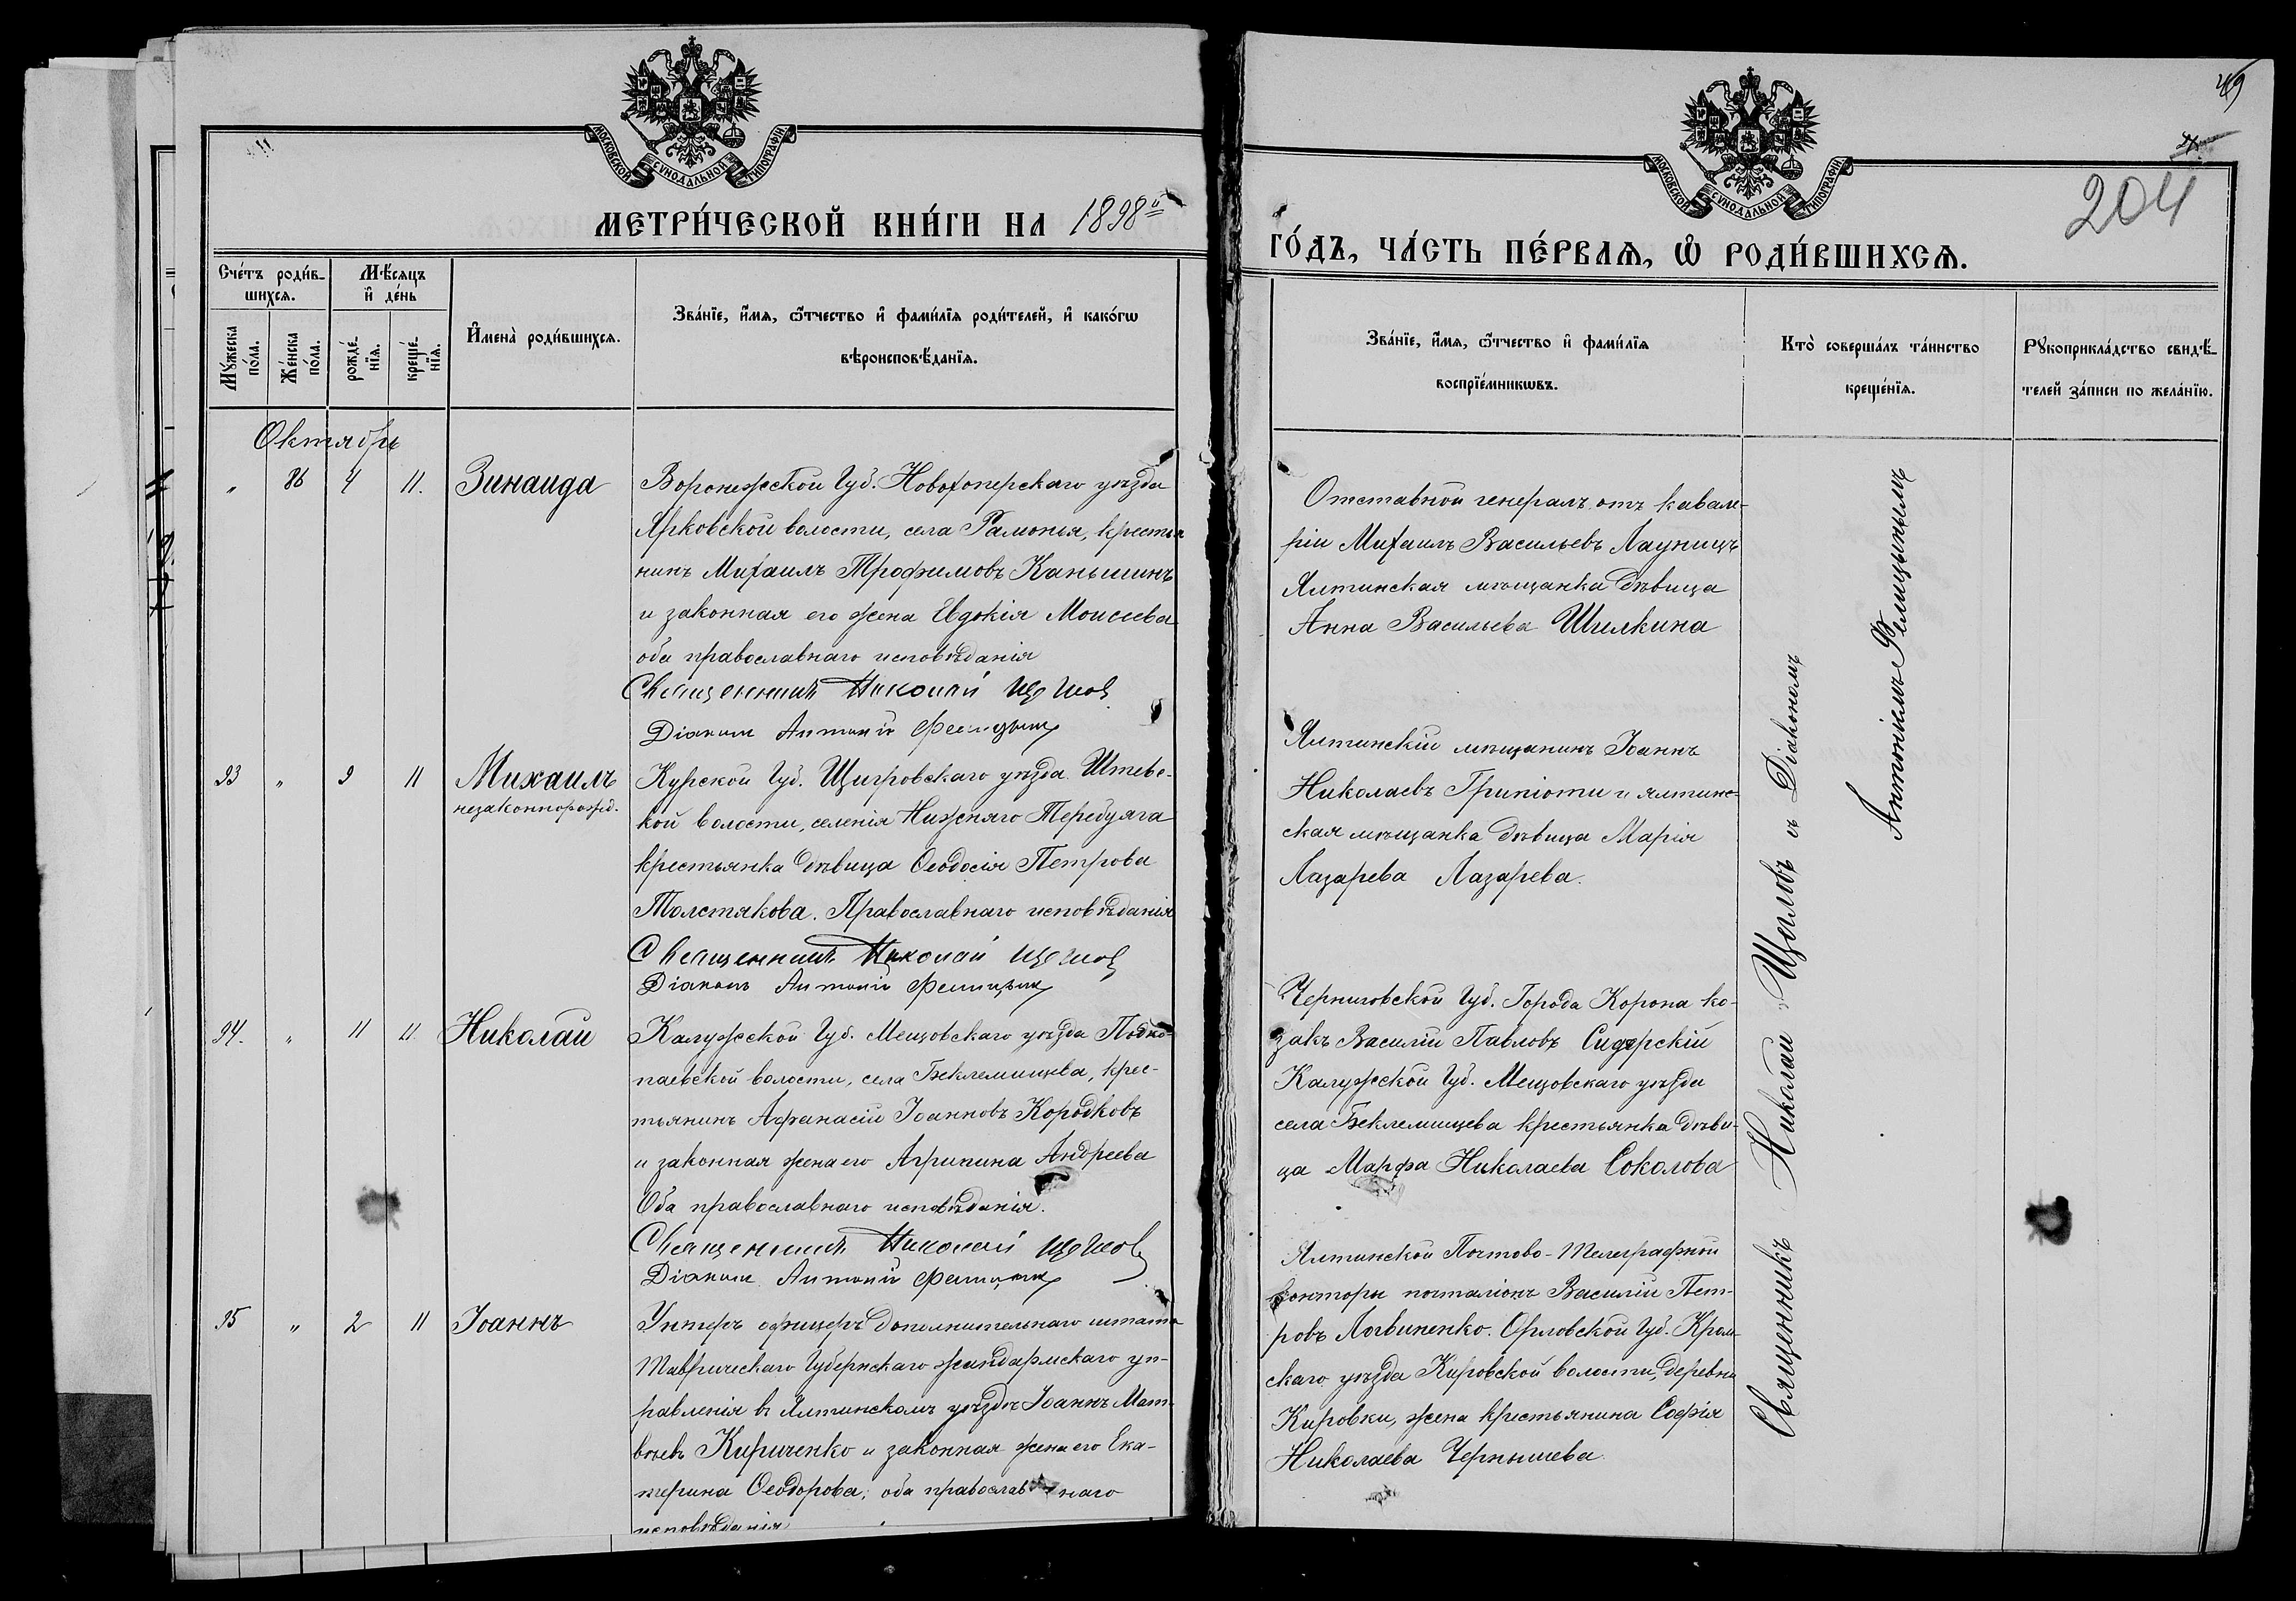 МОСКОВСКОЙ СѴНОДАЛЬНОЙ ТИПОГРАФІИ
МЕТРИ́ЧЕСКОЙ КНИ́ГИ НА 1898й
Сче́тъ роди́в-
шихся.
Мѣ́сяцъ
и҆ де́нь
Мꙋ́жеска
по́ла.
Же́нска
по́ла.
рожде́-
нїѧ.
креще́-
нїѧ.
И҆мена̀ роди́вшихсѧ.
Зва́нїе, и҆́мѧ, ѻ҆́тчество и҆ фами́лїѧ роди́телей, и҆ како́гѡ
вѣроисповѣ́данїѧ.
Октябрь
" 86 4 11. Зинаида
Воронежской Губ. Новохоперскаго уѣзда
Ярковской волости, села Рамонья, крестья
нинъ Михаилъ Трофимовъ Каньшинъ
и законная его жена Евдокія Моисеева
оба православнаго исповѣданія
Священникъ Николай Щегловъ
Діаконъ Антоній Фелицынъ
93 " 9 11 Михаилъ
незаконнорожд.
Курской Губ. Щигровскаго уѣзда Штевс-
кой волости, селенія Нижняго Теребужа
крестьянка дѣвица Ѳеодосія Петрова
Толстякова. Православнаго исповѣданія
Священникъ Николай Щегловъ
Діаконъ Антоній Фелицынъ
94. " 11 11 Николай
Калужской Губ. Мещовскаго уѣзда Подко-
паевской волости, села Беклемищева, крес-
тьянинъ Афанасій Іоанновъ Коробковъ
и законная жена его Агрипина Андреева
Оба православнаго исповѣданія.
Священникъ Николай Щегловъ
Діаконъ Антоній Фелицынъ
95 " 2 11 Іоаннъ
Унтеръ офицеръ дополнительнаго штата
Таврическаго Губернскаго жандармскаго уп-
равленія въ Ялтинскомъ уѣздѣ Іоаннъ Мат-
вѣевъ Кириченко и законная жена его Ека-
терина Ѳеодорова, оба православнаго
исповѣданія
49
204
МОСКОВСКОЙ СѴНОДАЛЬНОЙ ТИПОГРАФІИ
ГО́ДЪ, ЧА́СТЬ ПЕ́РВАѦ, Ѡ҆ РОДИ́ВШИХСѦ.
Зва́нїе, и҆́мѧ, ѻ҆́тчество и҆ фами́лїѧ
воспрїе́мникѡвъ.
Кто̀ соверша́лъ та́инство
креще́нїѧ.
Рꙋкоприкла́дство свидѣ́-
телей за́писи по жела́нїю.
Отставной генералъ отъ кавале-
ріи Михаилъ Васильевъ Лауницъ
Ялтинская мѣщанка дѣвица
Анна Васильева Шилкина
Ялтинскій мѣщанинъ Іоаннъ
Николаевъ Грипіоти и ялтинс-
ская мѣщанка дѣвица Марія
Лазарева Лазарева.
Черниговской Губ. Города Коропа ко-
закъ Василій Павловъ Сидерскій
Калужской Губ. Мещовскаго уѣзда
села Беклемищева крестьянка дѣви-
ца Марфа Николаева Соколова
Ялтинской Почтово-Телеграфной
конторы почталіонъ Василій Пет-
ровъ Логвиненко. Орловской Губ. Кром-
скаго уѣзда Кировской волости, деревни
Кировки, жена крестьянина Софія
Николаева Чернышева
Священникъ Николай Щегловъ съ Діакономъ
Антоніемъ Фелицынымъ